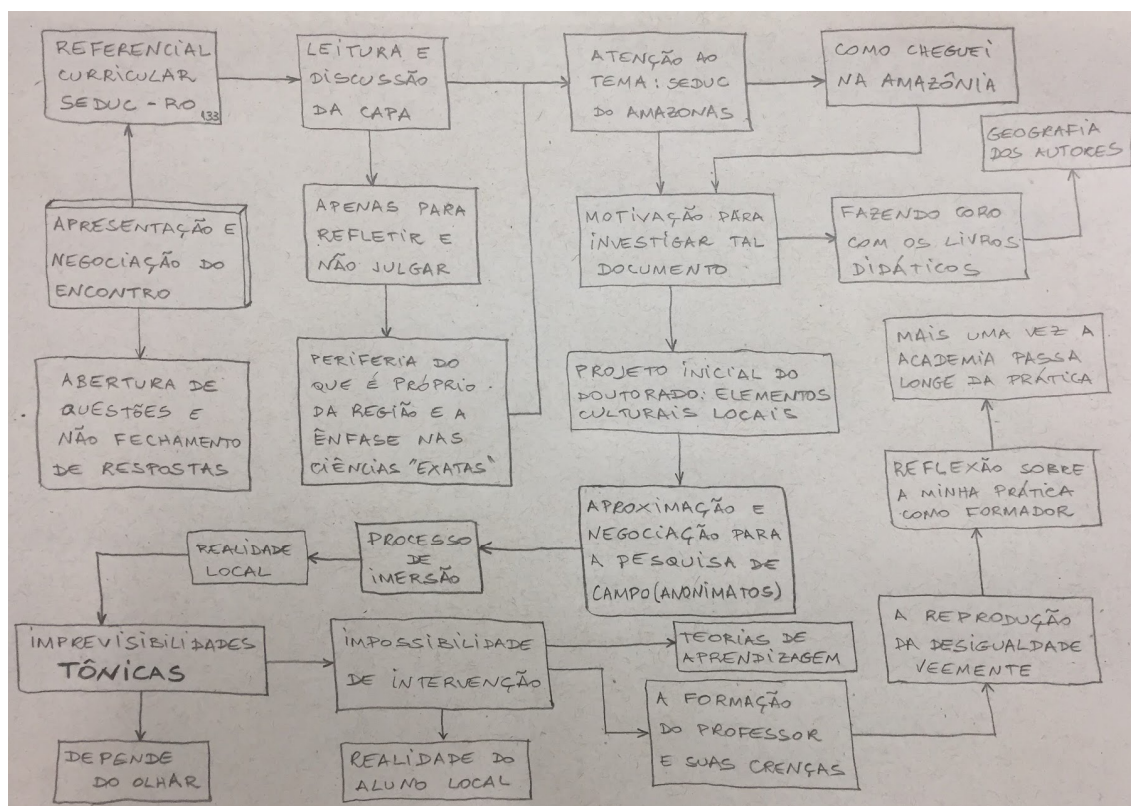 REFERENCIAL
CURRICULAR
SEDUC - RO
133
LEITURA E
DISCUSSÃO
DA CAPA
ATENÇÃO AO
TEMA: SEDUC
DO AMAZONAS
COMO CHEGUEI
NA AMAZÔNIA
GEOGRAFIA
DOS AUTORES
APRESENTAÇÃO E
NEGOCIAÇÃO DO
ENCONTRO
APENAS PARA
REFLETIR E
NÃO JULGAR
MOTIVAÇÃO PARA
INVESTIGAR TAL
DOCUMENTO
FAZENDO CORO
COM OS LIVROS
DIDÁTICOS
ABERTURA DE
QUESTÕES E
NÃO FECHAMENTO
DE RESPOSTAS
PERIFERIA DO
QUE É PRÓPRIO
DA REGIÃO E A
ÊNFASE NAS
CIÊNCIAS "EXATAS"
PROJETO INICIAL DO
DOUTORADO: ELEMENTOS
CULTURAIS LOCAIS
MAIS UMA VEZ A
ACADEMIA PASSA
LONGE DA PRÁTICA
REFLEXÃO SOBRE
A MINHA PRÁTICA
COMO FORMADOR
APROXIMAÇÃO E
NEGOCIAÇÃO PARA
A PESQUISA DE
CAMPO (ANONIMATOS)
PROCESSO
DE
IMERSÃO
REALIDADE
LOCAL
IMPREVISIBILIDADES
TÔNICAS
IMPOSSIBILIDADE
DE INTERVENÇÃO
TEORIAS DE
APRENDIZAGEM
A REPRODUÇÃO
DA DESIGUALDADE
VEEMENTE
A FORMAÇÃO
DO PROFESSOR
E SUAS CRENÇAS
DEPENDE
DO OLHAR
REALIDADE DO
ALUNO LOCAL